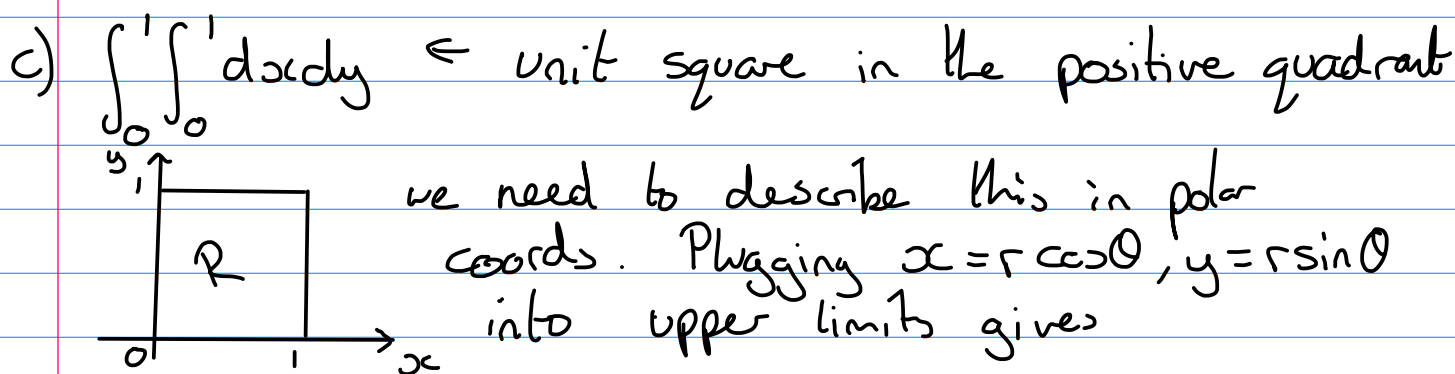 c) ∫₀¹ ∫₀¹ dxdy ← unit square in the positive quadrant
y
1
R
0 1 x
we need to describe this in polar
coords. Plugging x = r cosθ, y = r sinθ
into upper limits gives